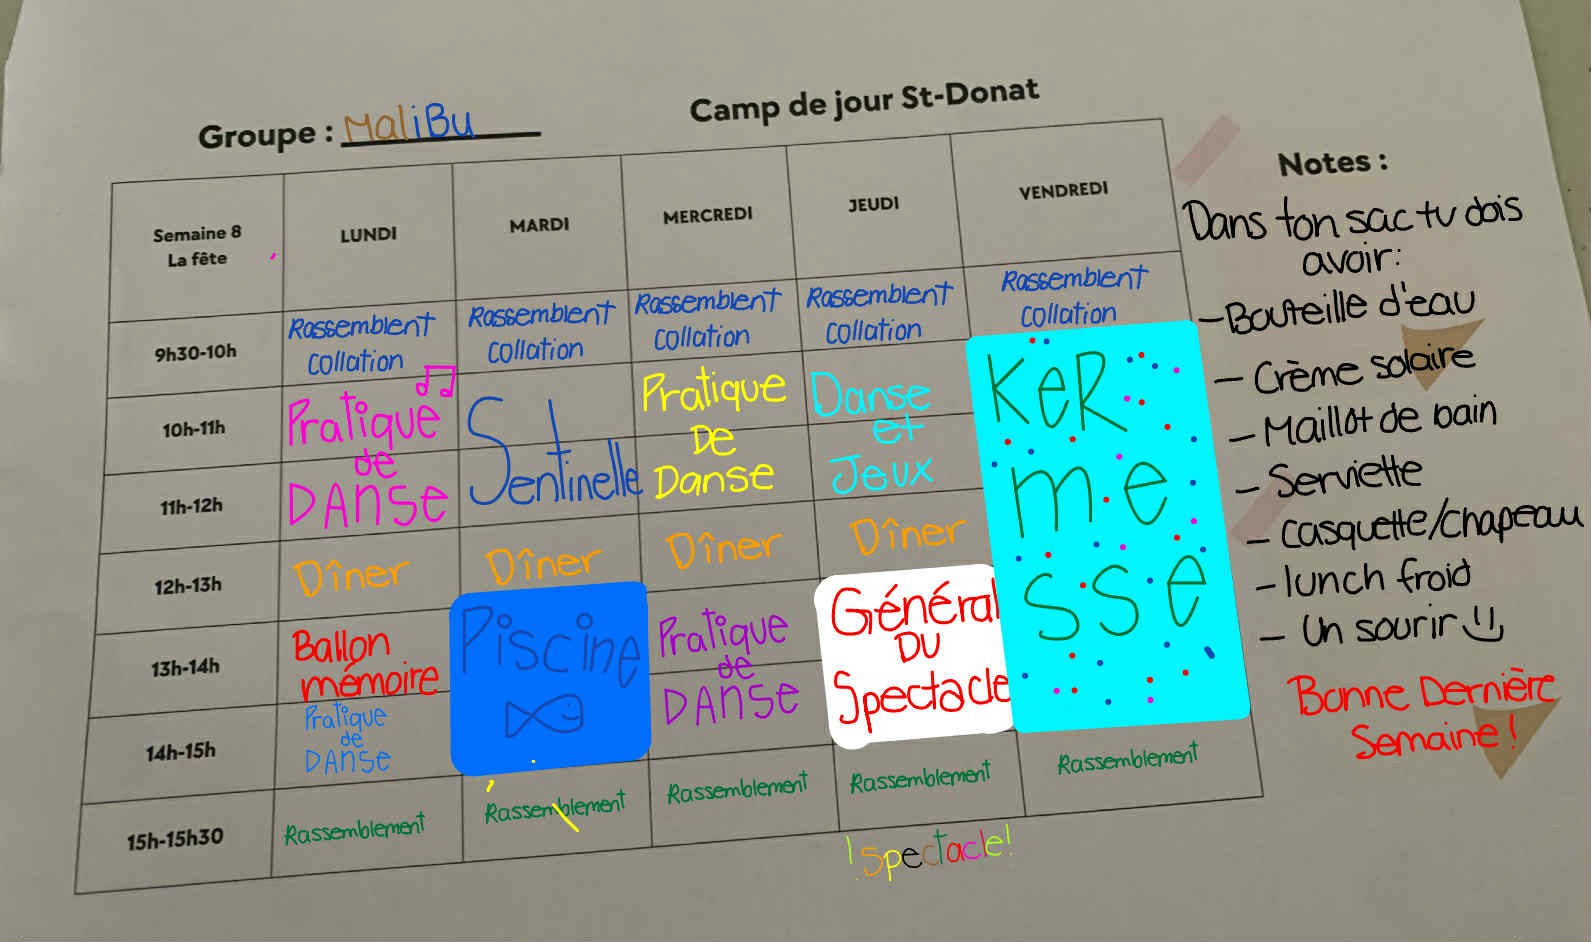 Camp de jour St-Donat
Groupe : MaliBu
Semaine 8
La fête
LUNDI
MARDI
MERCREDI
JEUDI
VENDREDI
9h30-10h
Rassemblent
collation
Rassemblent
collation
Rassemblent
collation
Rassemblent
collation
Rassemblent
collation
10h-11h
11h-12h
Pratique
de
DANSe
Sentinelle
Pratique
De
Danse
Danse
et
Jeux
KeR
me
sse
12h-13h
Dîner
Dîner
Dîner
Dîner
13h-14h
Ballon
mémoire
Piscine
Pratique
de
DANSe
Général
DU
Spectacle
14h-15h
Pratique
de
DANSe
15h-15h30
Rassemblement
Rassemblement
Rassemblement
Rassemblement
Rassemblement
!Spectacle!
Notes :
Dans ton sac tu dois
avoir:
- Bouteille d'eau
- Crème solaire
- Maillot de bain
- Serviette
- casquette/chapeau
- lunch froid
- Un sourir
Bonne Dernière
Semaine!